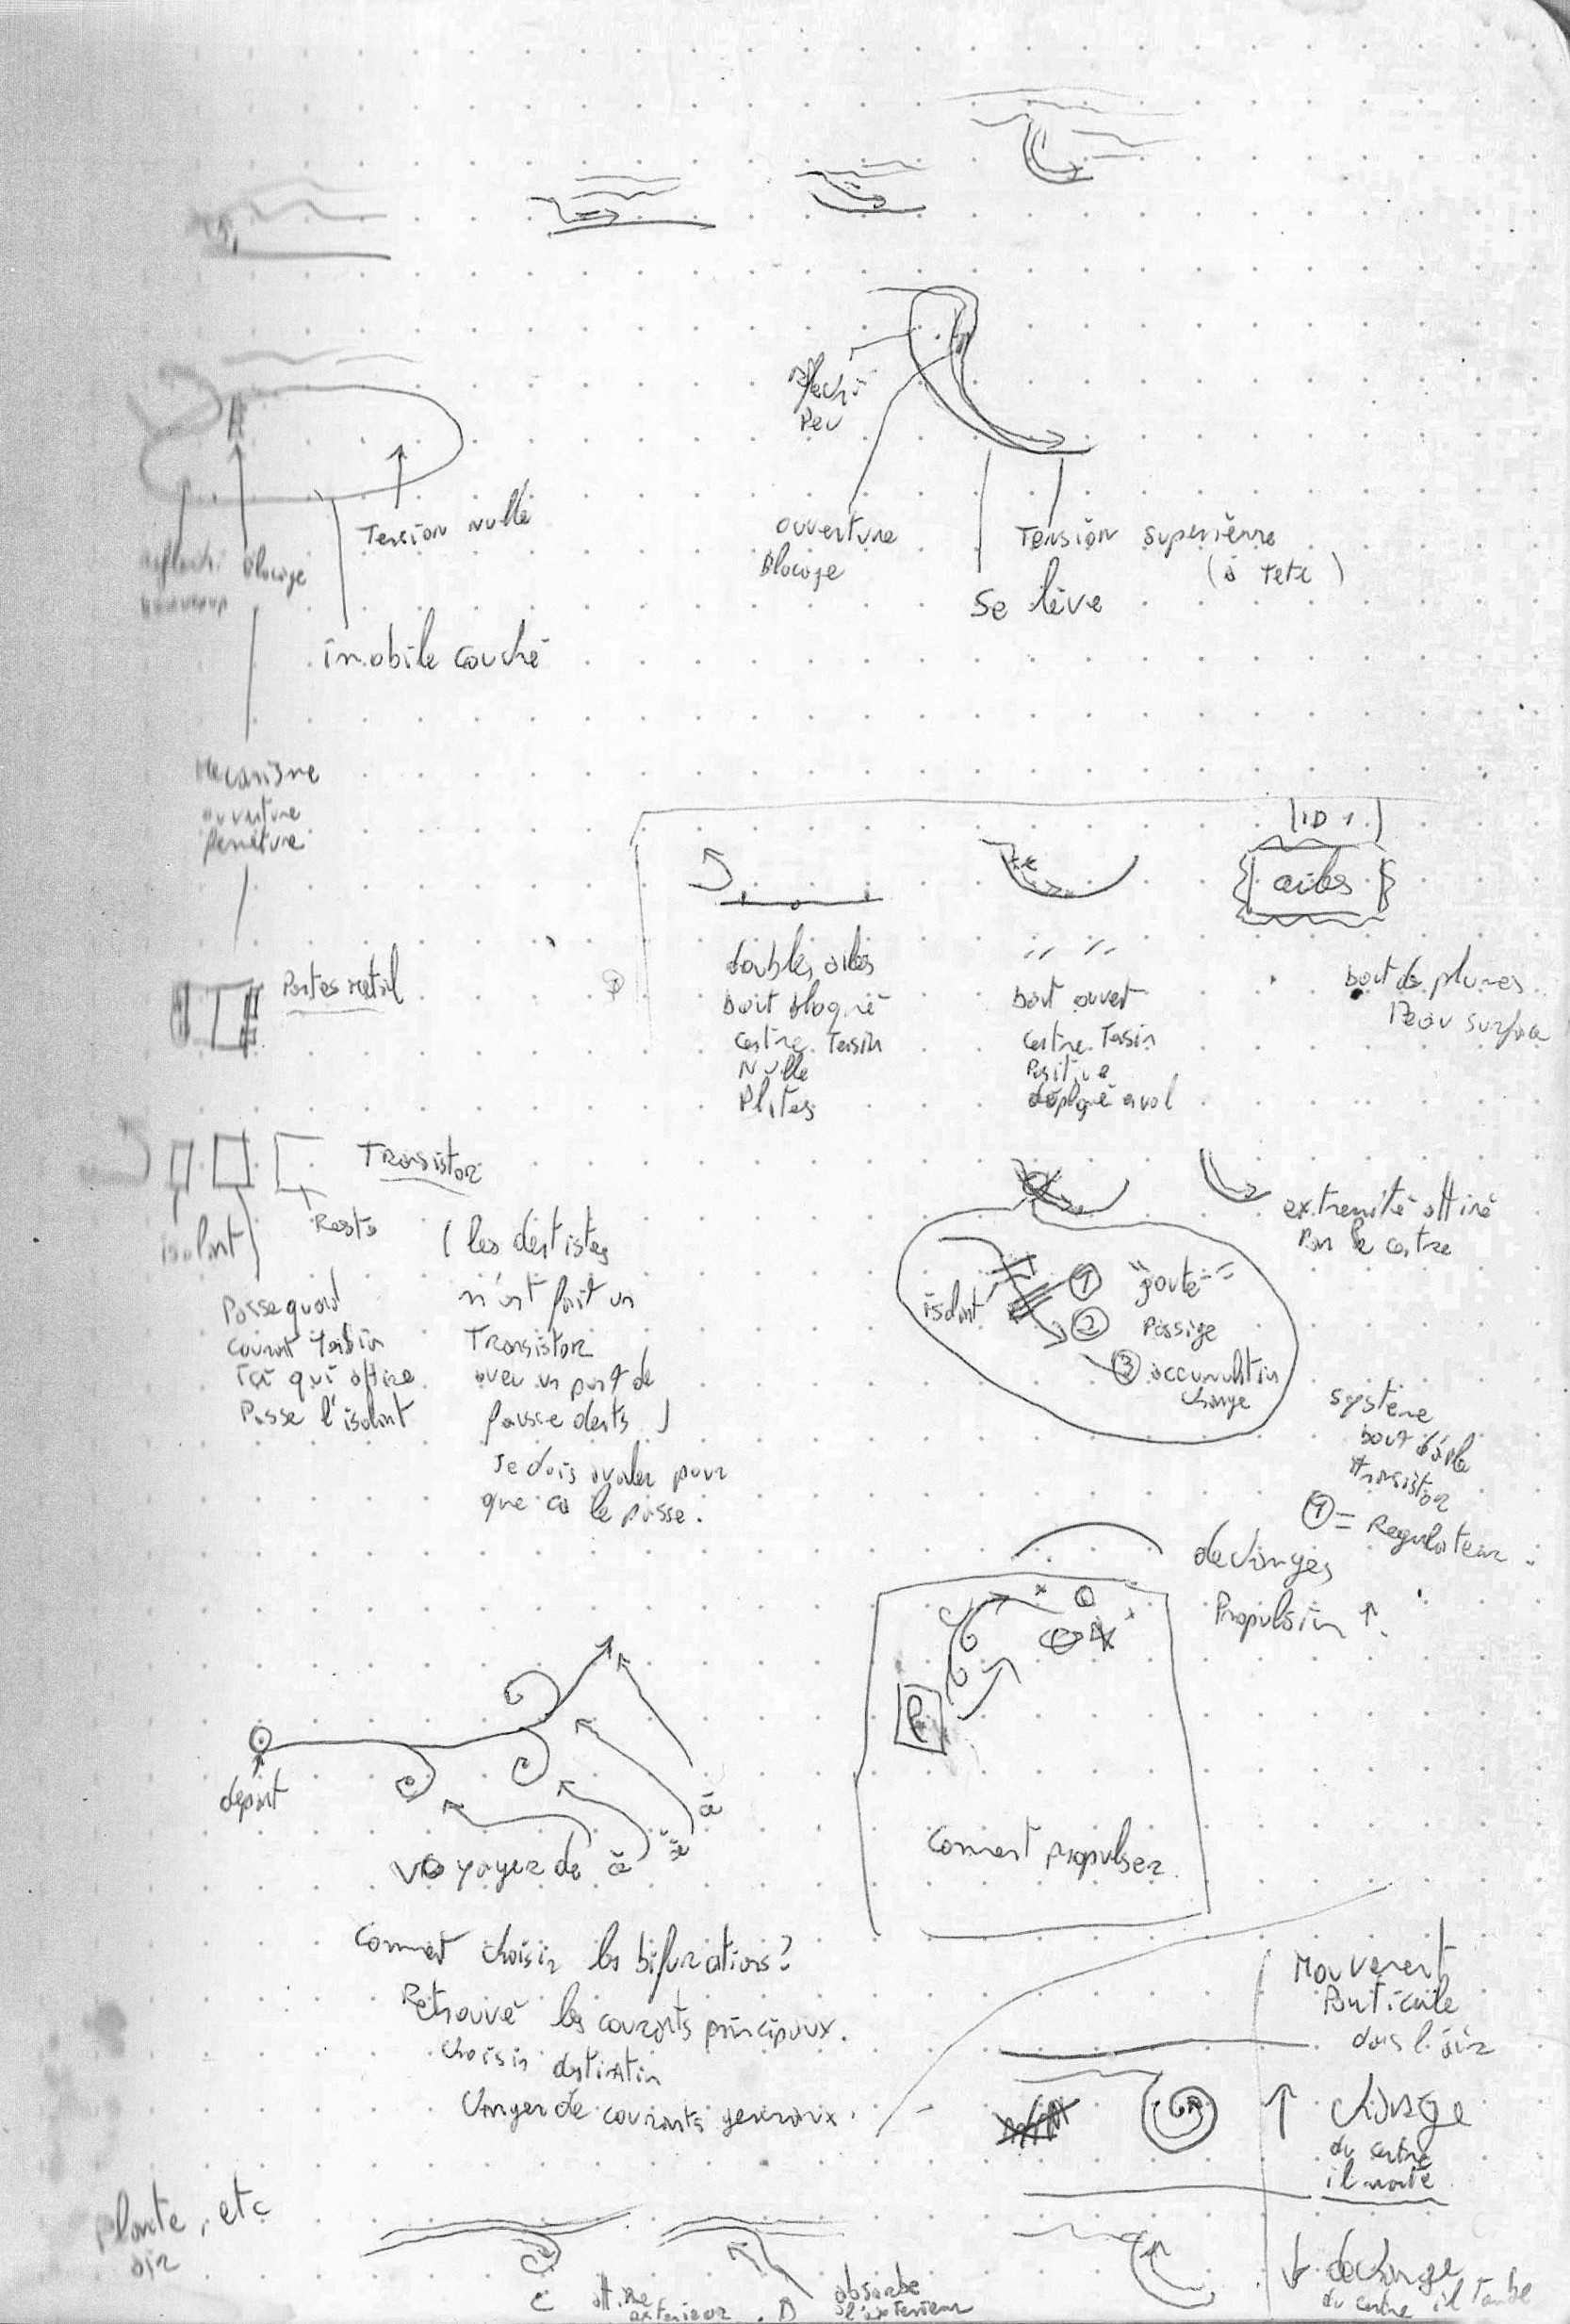 réfléchi
Peu
Tension nulle
ouverture
Blocage
Tension superierre
(à Tete)
Blocage
Se lève
imobile couché
Mecanisme
ouverture
fermeture
ID 1
ailes
Portes metal
doubles ailes
bout bloqué
centre Tension
Nulle
Plites
" "
bout ouvert
centre Tension
Positive
déployé a vol
bout de plumes
Peau surface
Transistor
isolant
Reste
Passe quand
courant
qui attire
Passe l'isolant
(les dentistes
m'ont fait un
Transistor
avec un pont de
fausse dents)
Je dois avaler pour
que ca le passe.
extremité attiré
Par le centre
isolant
1 "porte"
2 Passage
3 accumulation
charge
système
bout d'aile
transistor
1 = Regulateur
decharges
Propulsion ↑
P
depart
voyager de
Comment propulser
Comment choisir les bifurcations?
Retrouvé les courants principaux.
choisir destination
Changer de courants generaux.
Mouvement
Particule
dans l'air
↑ charge
du centre
il monte
plante, etc
air
C
exterieur
absorbe
l'exterieur
↓ decharge
du centre il tombe